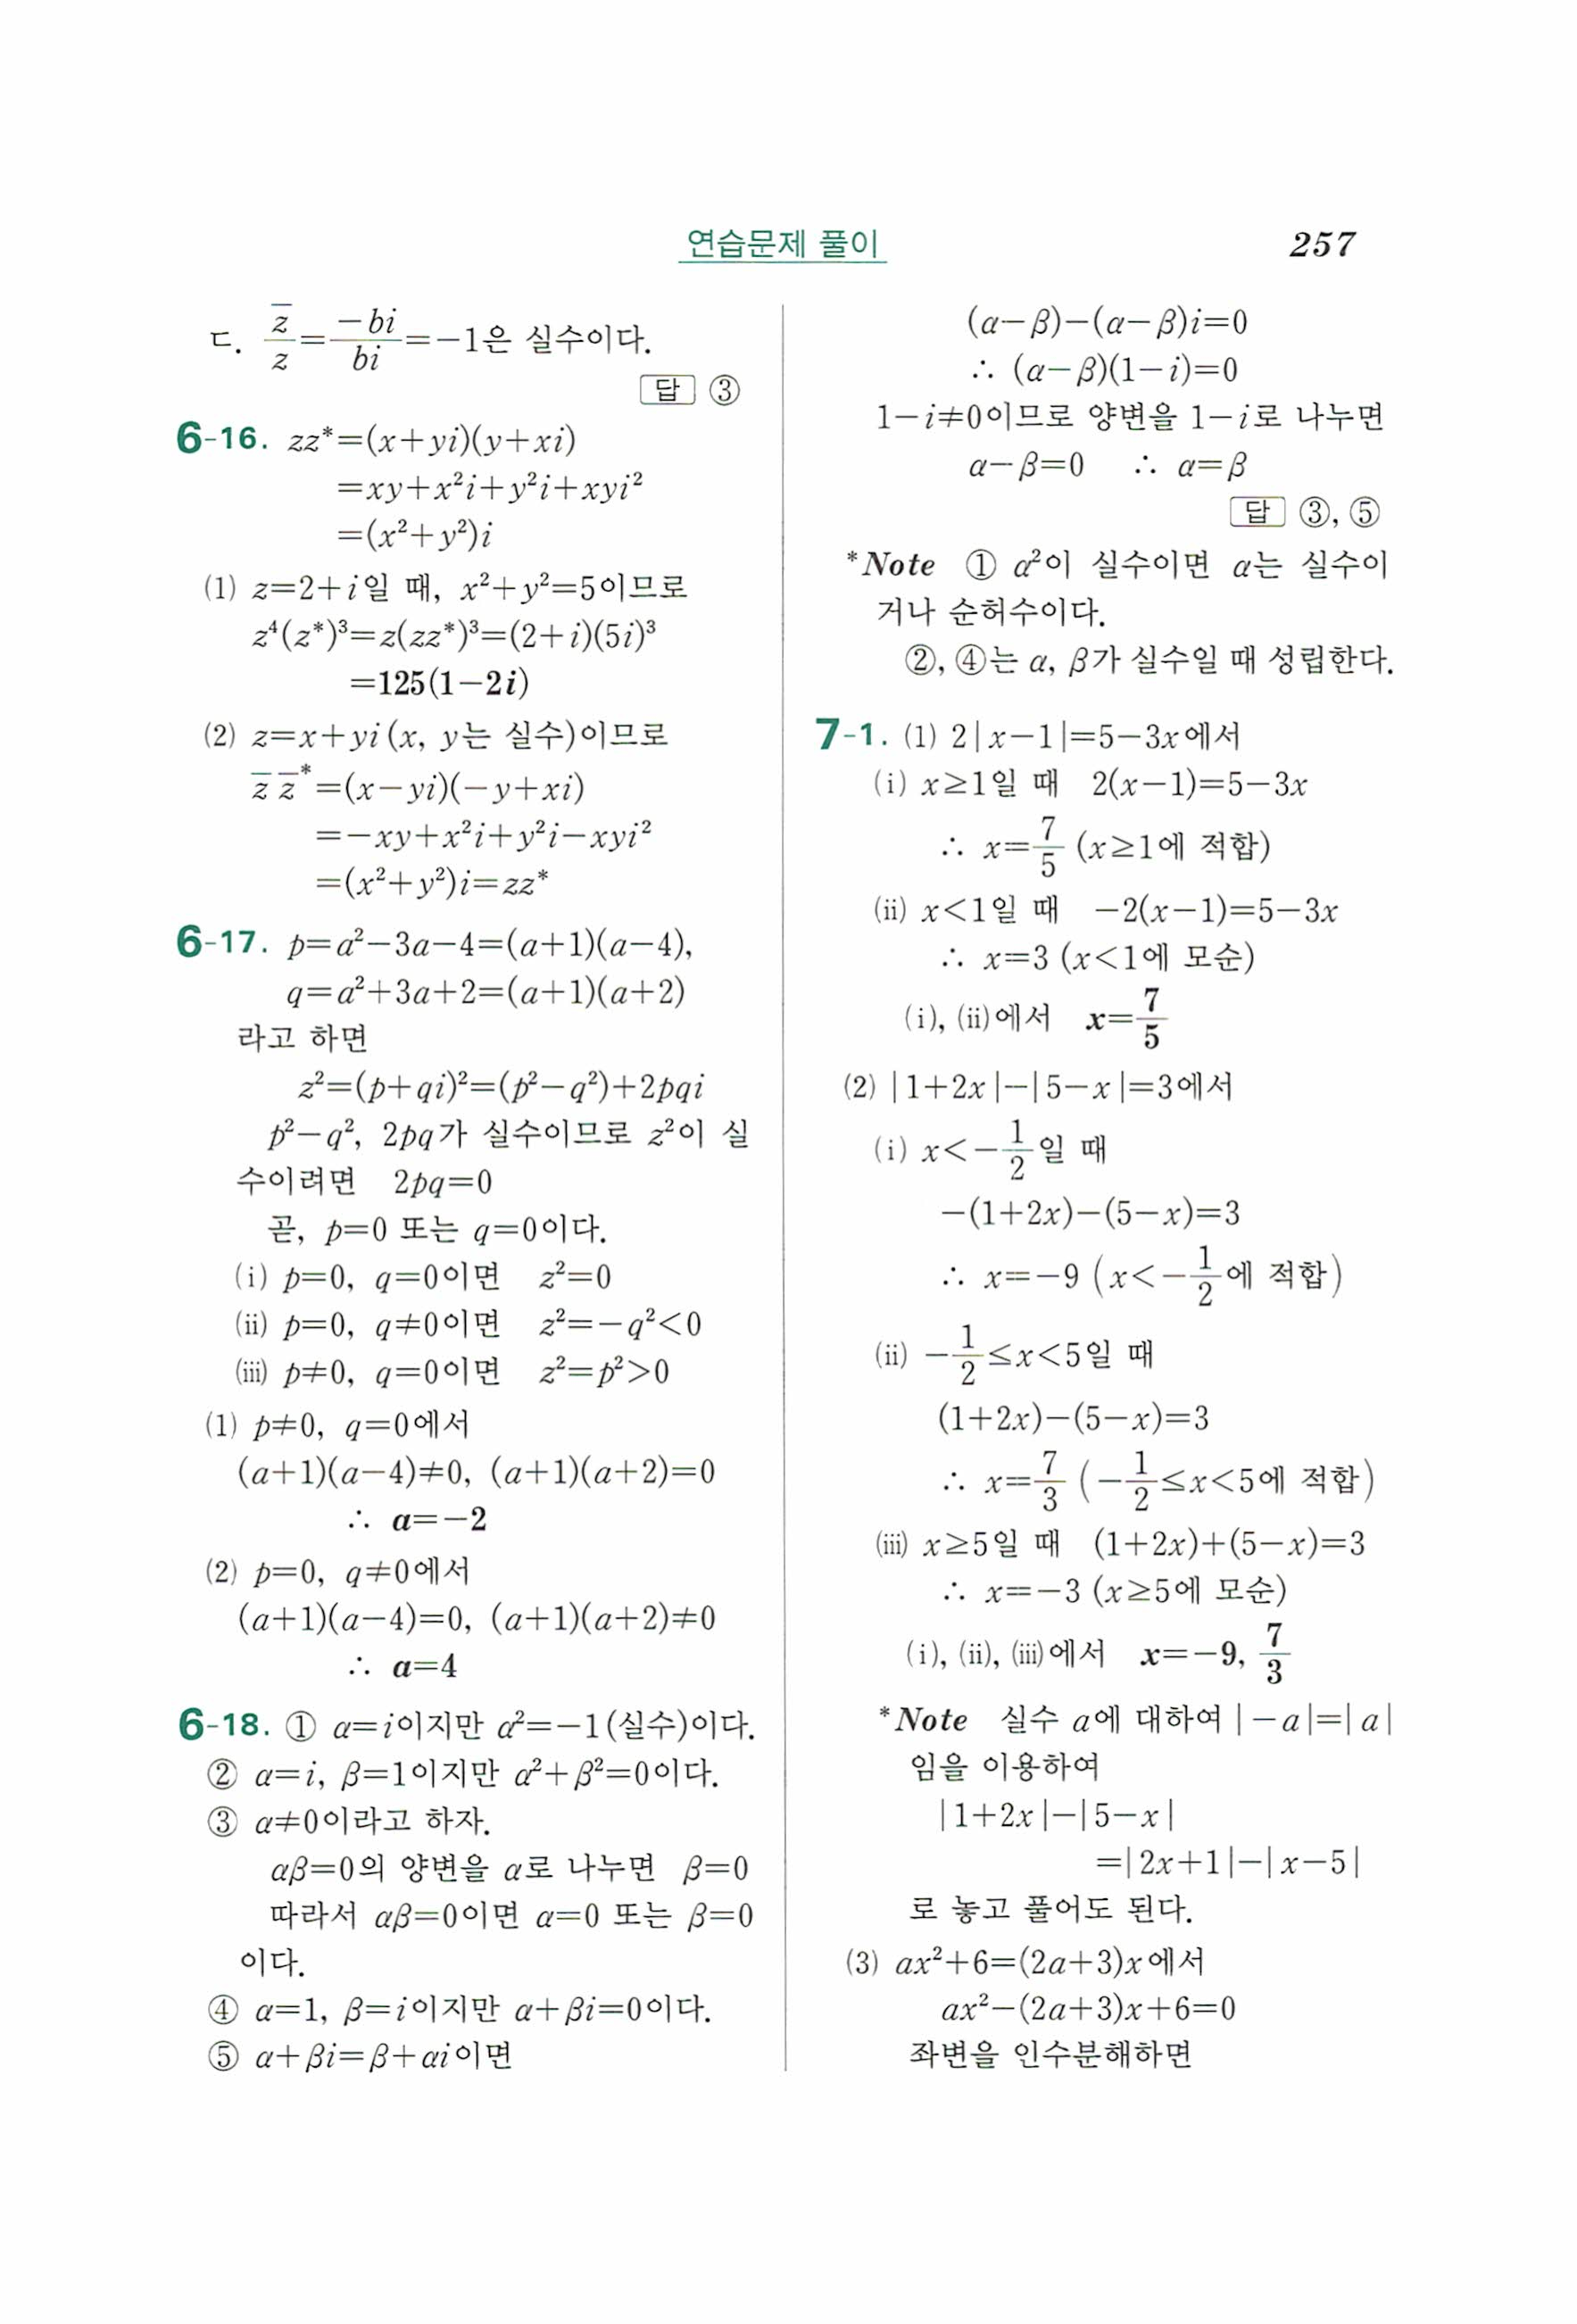 연습문제 풀이
257
ㄷ. z̅/z=−bi/bi=−1은 실수이다.
답 ③
6-16. zz*=(x+yi)(y+xi)
=xy+x²i+y²i+xyi²
=(x²+y²)i
(1) z=2+i일 때, x²+y²=5이므로
z⁴(z*)³=z(zz*)³=(2+i)(5i)³
=125(1−2i)
(2) z=x+yi(x, y는 실수)이므로
z̅ z̅*=(x−yi)(−y+xi)
=−xy+x²i+y²i−xyi²
=(x²+y²)i=zz*
6-17. p=a²−3a−4=(a+1)(a−4),
q=a²+3a+2=(a+1)(a+2)
라고 하면
z²=(p+qi)²=(p²−q²)+2pqi
p²−q², 2pq가 실수이므로 z²이 실
수이려면 2pq=0
곧, p=0 또는 q=0이다.
(i) p=0, q=0이면 z²=0
(ii) p=0, q≠0이면 z²=−q²<0
(iii) p≠0, q=0이면 z²=p²>0
(1) p≠0, q=0에서
(a+1)(a−4)≠0, (a+1)(a+2)=0
∴ a=−2
(2) p=0, q≠0에서
(a+1)(a−4)=0, (a+1)(a+2)≠0
∴ a=4
6-18. ① α=i이지만 α²=−1(실수)이다.
② α=i, β=1이지만 α²+β²=0이다.
③ α≠0이라고 하자.
αβ=0의 양변을 α로 나누면 β=0
따라서 αβ=0이면 α=0 또는 β=0
이다.
④ α=1, β=i이지만 α+βi=0이다.
⑤ α+βi=β+αi이면
(α−β)−(α−β)i=0
∴ (α−β)(1−i)=0
1−i≠0이므로 양변을 1−i로 나누면
α−β=0 ∴ α=β
답 ③, ⑤
*Note ① α²이 실수이면 α는 실수이
거나 순허수이다.
②, ④는 α, β가 실수일 때 성립한다.
7-1. (1) 2|x−1|=5−3x에서
(i) x≥1일 때 2(x−1)=5−3x
∴ x=7/5 (x≥1에 적합)
(ii) x<1일 때 −2(x−1)=5−3x
∴ x=3 (x<1에 모순)
(i), (ii)에서 x=7/5
(2) |1+2x|−|5−x|=3에서
(i) x<−1/2일 때
−(1+2x)−(5−x)=3
∴ x=−9 (x<−1/2에 적합)
(ii) −1/2≤x<5일 때
(1+2x)−(5−x)=3
∴ x=7/3 (−1/2≤x<5에 적합)
(iii) x≥5일 때 (1+2x)+(5−x)=3
∴ x=−3 (x≥5에 모순)
(i), (ii), (iii)에서 x=−9, 7/3
*Note 실수 a에 대하여 |−a|=|a|
임을 이용하여
|1+2x|−|5−x|
=|2x+1|−|x−5|
로 놓고 풀어도 된다.
(3) ax²+6=(2a+3)x에서
ax²−(2a+3)x+6=0
좌변을 인수분해하면